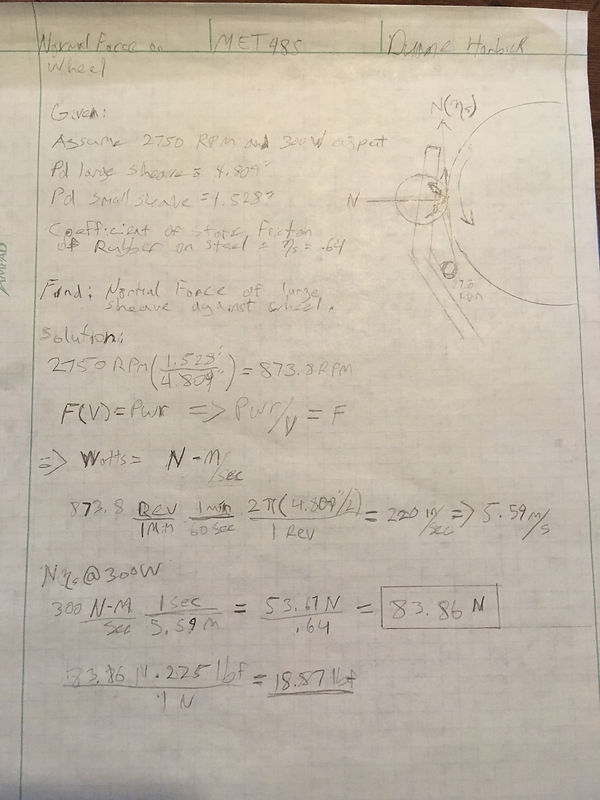 Normal Force on Wheel
MET 485
Duane
Given:
Assume 2750 RPM and 300W output
Pd large sheave = 4.809"
Pd small sheave = 1.528"
Coefficient of Static Friction
of Rubber on Steel = ηs = .64
Find: Normal Force of large
sheave against wheel.
N(ηs)
N
RPM
AMPAD
Solution:
2750 RPM (1.528" / 4.809") = 873.8 RPM
F(V) = Pwr => Pwr/V = F
=> Watts = N-M/sec
873.8 Rev/1Min 1min/60sec 2π(4.809"/2)/1 Rev = 220 in/sec => 5.59 M/s
Nηs @ 300W
300 N-M/sec 1sec/5.59 M = 53.67 N/.64 = 83.86 N
83.86 N . 225 lbf / 1 N = 18.87 lbf